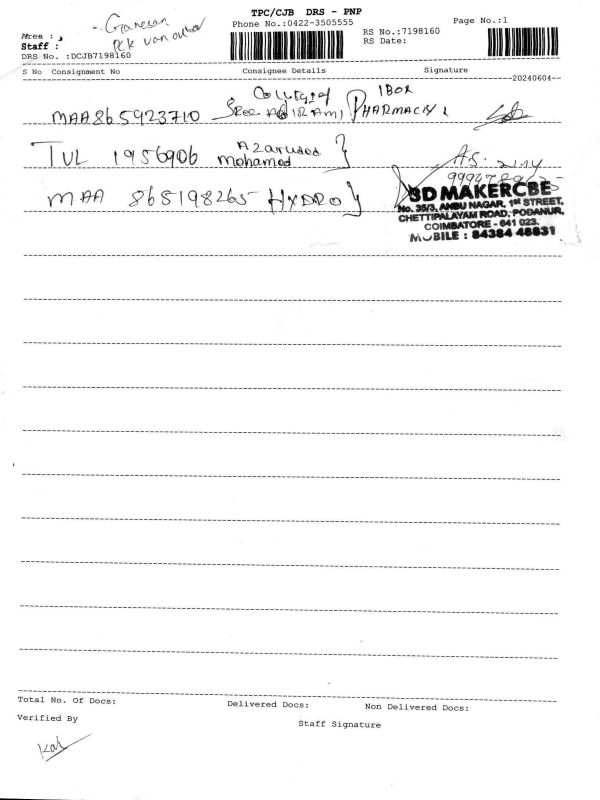 TPC/CJB DRS - PNP
Phone No.:0422-3505555
Page No.:1
Area :
Ganesan
Staff :
RS No.:7198160
RS Date:
DRS No. :DCJB7198160
S No Consignment No Consignee Details Signature
20240604
College of 1Box
MAA865923710 Sree Abirami Pharmacy
TUL 1956906 Azarudod
Mohamed }
MAA 865198265 HYDRO }
3D MAKERCBE
No. 35/3, ANBU NAGAR, 1st STREET,
CHETTIPALAYAM ROAD, PODANUR,
COIMBATORE - 641 023.
MOBILE : 84384 48831
Total No. Of Docs: Delivered Docs: Non Delivered Docs:
Verified By Staff Signature